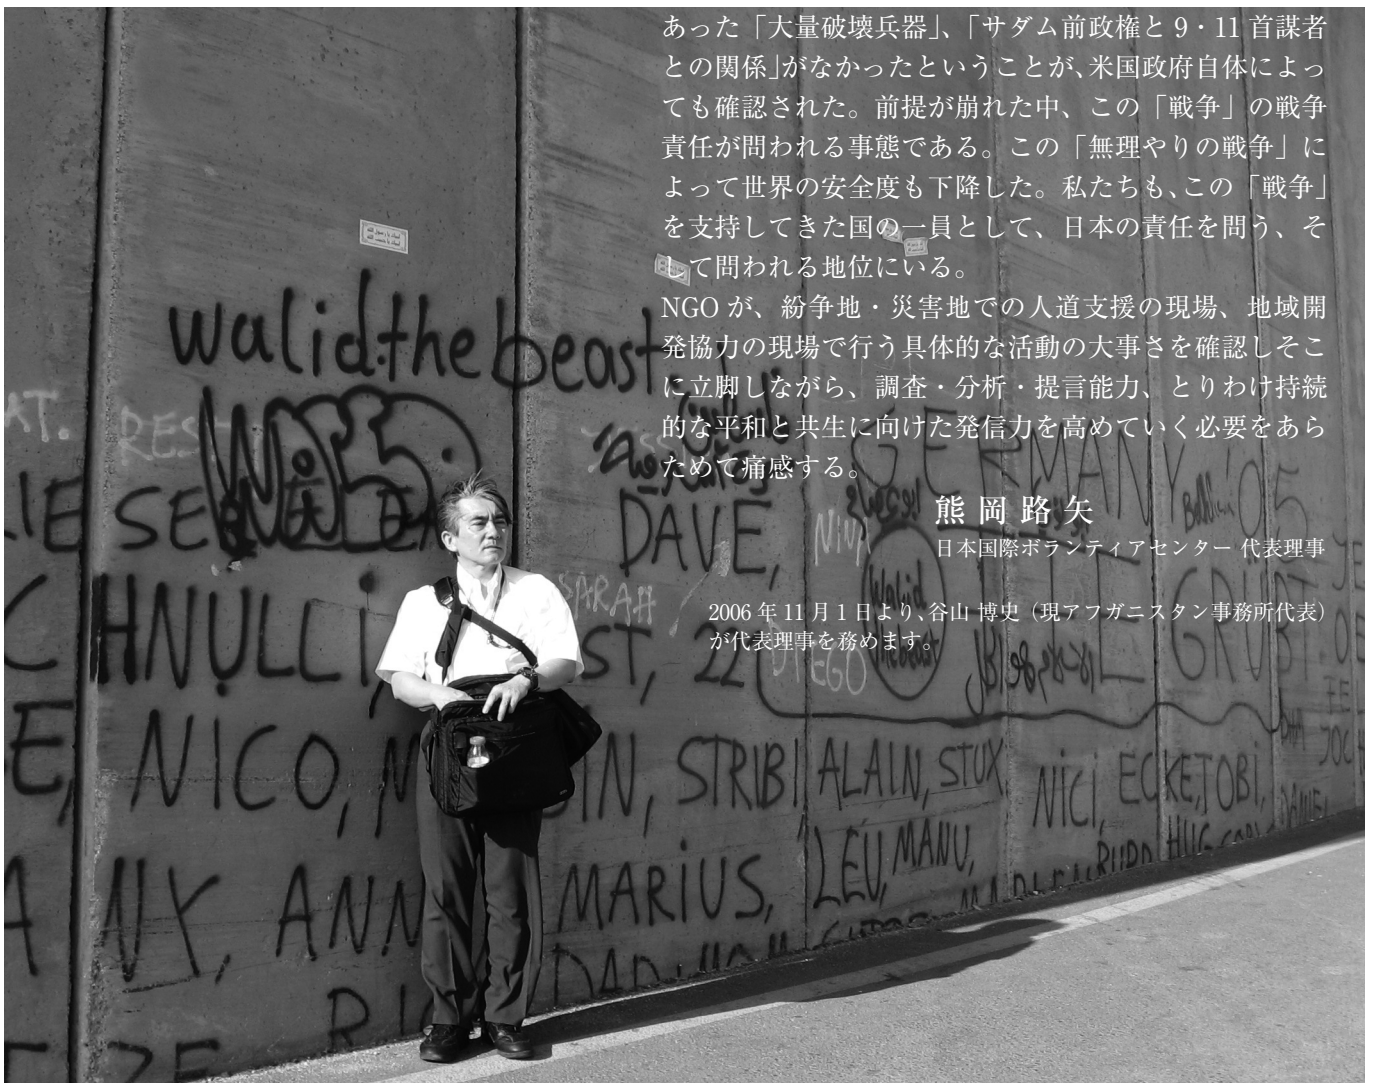 あった「大量破壊兵器」、「サダム前政権と 9・11 首謀者
との関係」がなかったということが、米国政府自体によっ
ても確認された。前提が崩れた中、この「戦争」の戦争
責任が問われる事態である。この「無理やりの戦争」に
よって世界の安全度も下降した。私たちも、この「戦争」
を支持してきた国の一員として、日本の責任を問う、そ
して問われる地位にいる。
NGO が、紛争地・災害地での人道支援の現場、地域開
発協力の現場で行う具体的な活動の大事さを確認しそこ
に立脚しながら、調査・分析・提言能力、とりわけ持続
的な平和と共生に向けた発信力を高めていく必要をあら
ためて痛感する。
熊岡路矢
日本国際ボランティアセンター 代表理事
2006 年 11 月 1 日より、谷山 博史（現アフガニスタン事務所代表）
が代表理事を務めます。
walid.the beast
AT.
GERMANY 05
DAVE,
NINA
SARAH
Walid
the beast
HNULLI, ST, 22
DIEGO
GRÜBT.
NICO, IN, STRIBI ALAIN, STUX
NICI, ECKE, TOBI,
NY, ANN MARIUS, LEU, MANU,